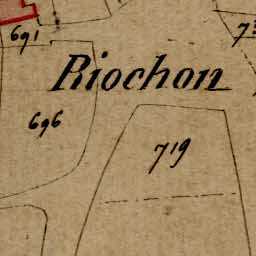 691
Riochon
696
719